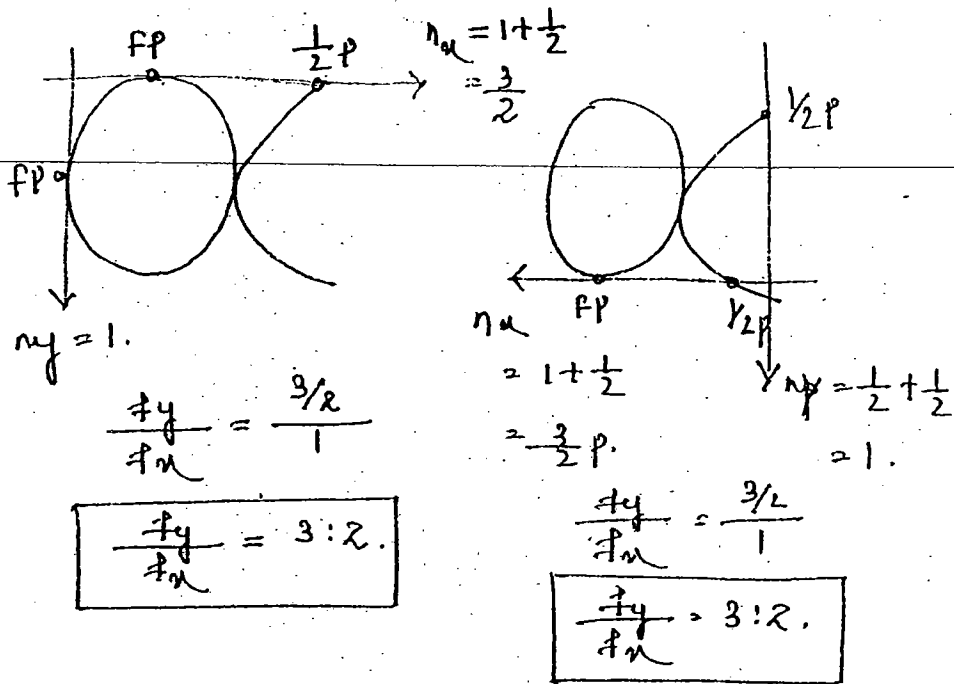 FP
1/2 P
nx = 1 + 1/2
= 3/2
fP
ny = 1.
fy/fx = 3/2 / 1
fy/fx = 3:2.
1/2 P
FP
1/2 P
nx
= 1 + 1/2
= 3/2 P.
ny = 1/2 + 1/2
= 1.
fy/fx = 3/2 / 1
fy/fx = 3:2.